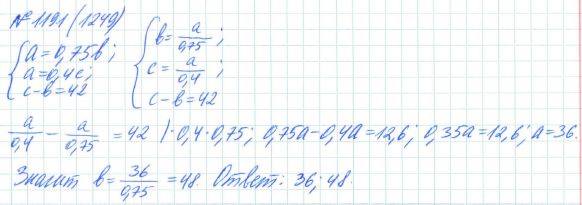 № 1191 (1249)
{ a = 0,75b; a = 0,4c; c - b = 42
{ b = a/0,75; c = a/0,4; c - b = 42
a/0,4 - a/0,75 = 42 | · 0,4 · 0,75; 0,75a - 0,4a = 12,6; 0,35a = 12,6; a = 36.
Значит b = 36/0,75 = 48. Ответ: 36; 48.